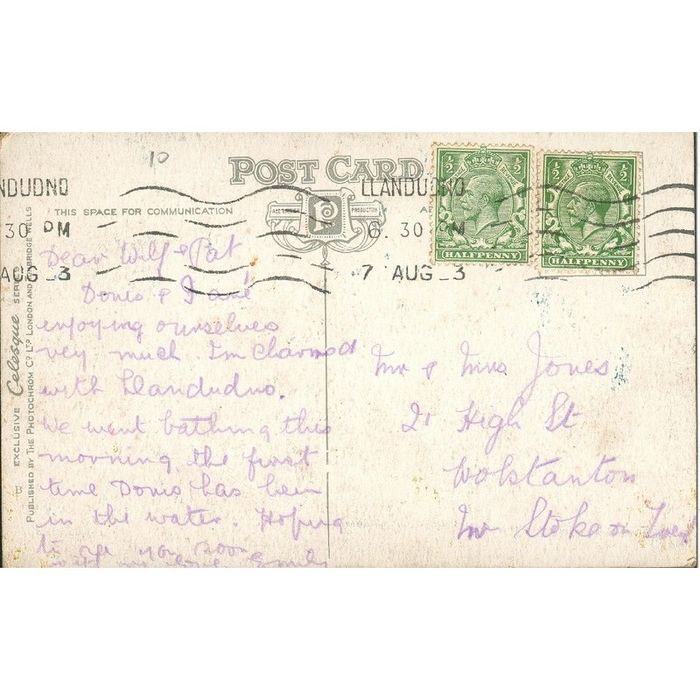 10
POST CARD
THIS SPACE FOR COMMUNICATION
LLANDUDNO
6. 30 PM
7 AUG 3
NDUDNO
30 PM
AUG 3
½ ½
HALFPENNY
½ ½
HALFPENNY
EXCLUSIVE Celesque SERIES
PUBLISHED BY THE PHOTOCHROM CO LTD LONDON AND TUNBRIDGE WELLS
B
Dear Wilf & Pat
Doris & I are
enjoying ourselves
very much I'm charmed
with Llandudno.
We went bathing this
morning the first
time Doris has been
in the water. Hoping
to see you soon
with love Emily
Mr & Mrs Jones
21 High St
Wolstanton
Nr Stoke on Trent